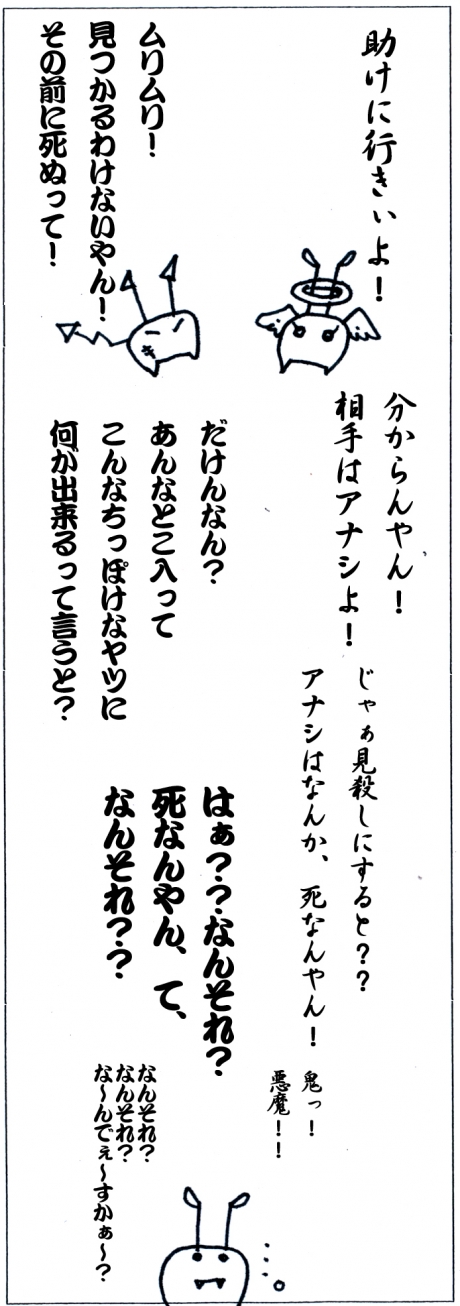 助けに行きぃよ！
ムリムリ！
見つかるわけないやん！
その前に死ぬって！
分からんやん！
相手はアナシよ！
だけんなん？
あんなとこ入って
こんなちっぽけなヤツに
何が出来るって言うと？
じゃぁ見殺しにすると？？
アナシはなんか、死なんやん！
はぁ？？なんそれ？
死なんやん、て、
なんそれ？？
鬼っ！
悪魔！！
なんそれ？
なんそれ？
な〜んでぇ〜すかぁ〜？